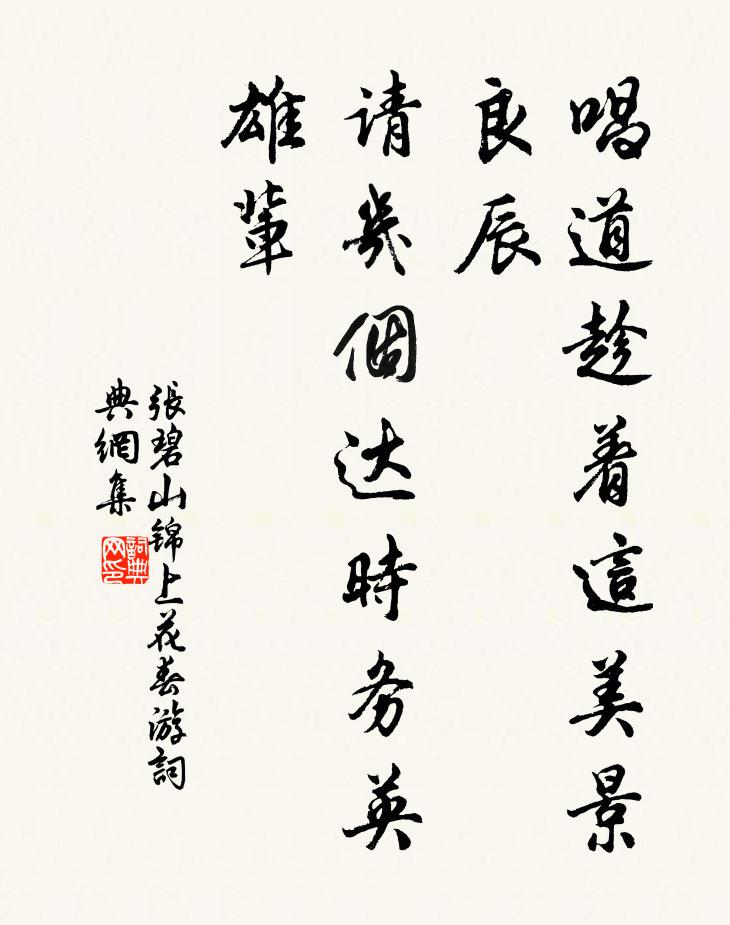 唱道趁着這美景
良辰
请幾個达時务英
雄輩
張碧山锦上花春游詞
典網集
詞典
网印